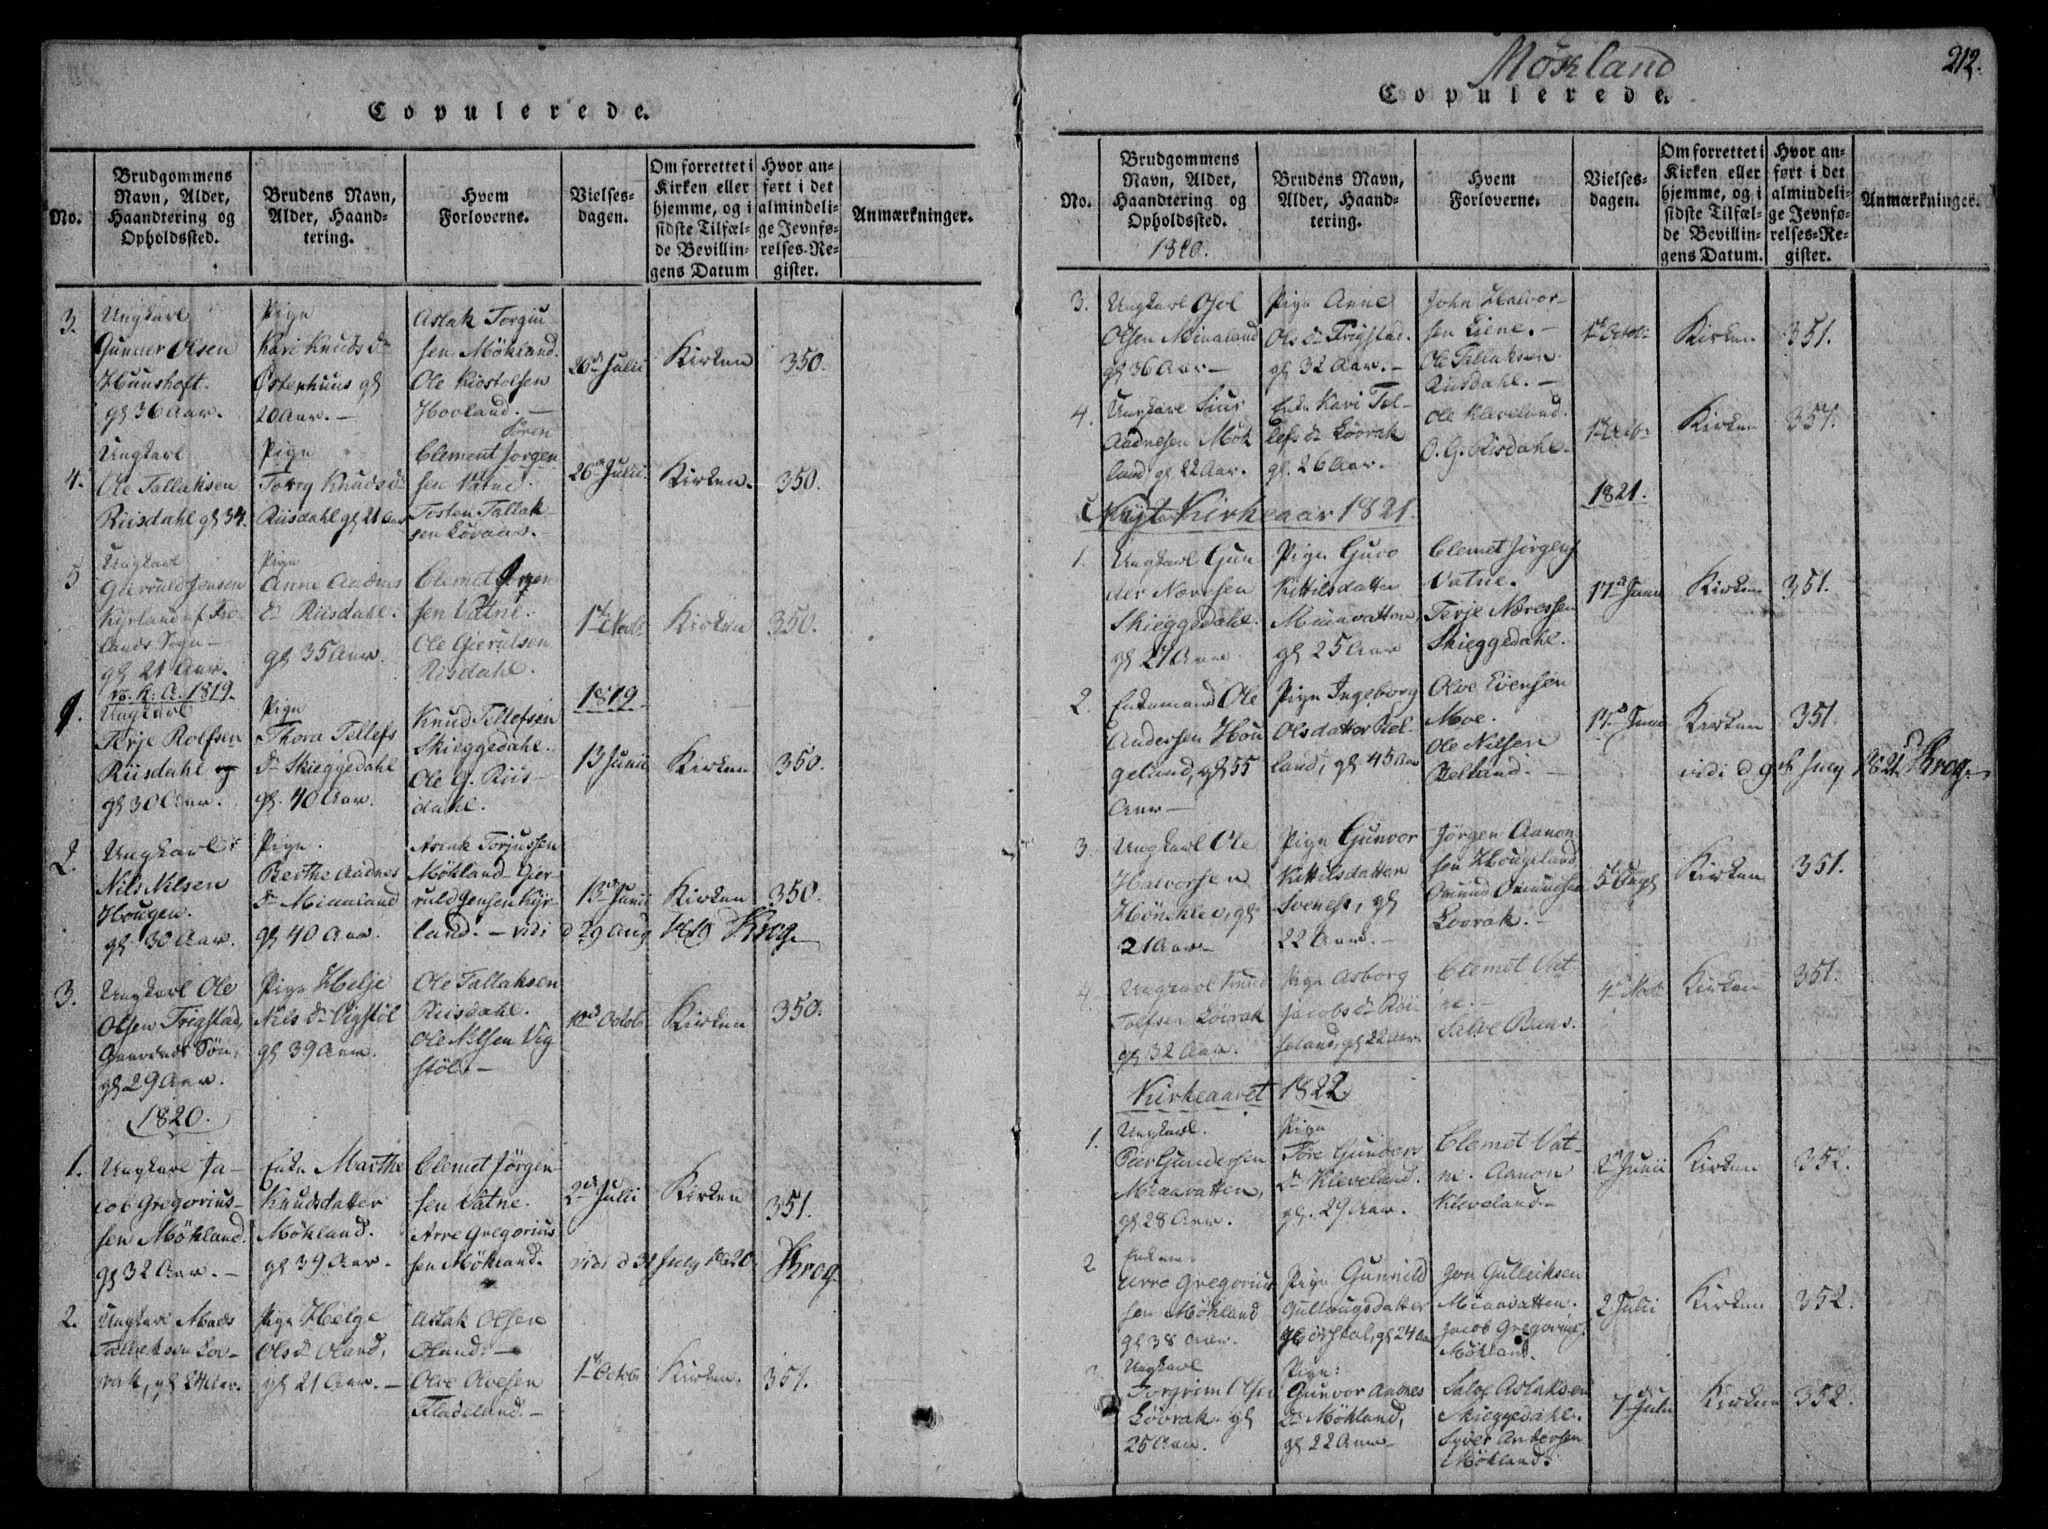 Copulerede.
No.
Brudgommens
Navn, Alder,
Haandtering og
Opholdssted.
Brudens Navn,
Alder, Haand-
tering.
Hvem
Forloverne.
Vielses-
dagen.
Om forrettet i
Kirken eller
hjemme, og i
sidste Tilfæl-
de Bevillin-
gens Datum
Hvor an-
ført i det
almindeli-
ge Jevnfø-
relses-Re-
gister.
Anmærkninger.
3.
Ungkarl
Gunner Olsen
Huushoft.
gl 36 Aar.
Pige
Kari Knuds Dr
Østerhuus gl
20 Aar. -
Aslak Torgiu-
sen Møkland.
Ole Kiostolsen
Hovland. -
26de Julii
Kirken
350.
4.
Ungkarl
Ole Tallaksen
Riisdahl gl 34.
Pige
Torry Knuds d
Riisdahl gl 21 Aar
Søren
Clement Jørgen-
sen Vatne.
Tosten Tallak
sen Løvaas.
26 Julii.
Kirken.
350.
5
Ungkarl
Gieruld Jensen
Kyrland af Fro-
lands Sogn -
gl 21 Aar.
Pige
Anne Aadnes
Dr Riisdahl.
gl 35 Aar.
Clemet Jørgen
sen Vatne.
Ole Gierulsen
Risdahl.
1ste Novbr
Kirken
350.
K. A. 1819.
1819
1.
Ungkarl
Terje Rolfsen
Riisdahl og
gl 30 Aar.
Pige
Thora Tellefs
Dr Skieggedahl
gl. 40 Aar.
Knud Tellefsen
Skieggedahl.
Ole G. Riis-
dahl.
13 Junii
Kirken
350.
2.
Ungkarl
Nils Nilsen
Hougen.
gl 30 Aar.
Pige.
Berthe Aadnes
Dr Miaaland
gl 40 Aar.
Aslak Torjussen
Møkland Gier-
ruld Jensen Kyr-
land. - vidi d 29 Aug 1819 Krog
13 Junii
Kirken
350.
3.
Ungkarl Ole
Olsen Trigstad,
Gaardmds Søn,
gl 29 Aar.
Pige Helje
Nils Dr Vigstøl
gl 39 Aar.
Ole Tallaksen
Riisdahl.
Ole Nilsen Vig
støl. -
Octob
Kirken
350.
1820.
1.
Ungkarl Ja-
cob Gregorius-
sen Møkland.
gl 32 Aar. -
Enke Marthe
Knudsdatter
Møkland.
gl 39 Aar.
Clemet Jørgen-
sen Vatne.
Arre Gregorius
sen Møkland.
2de Julii
Kirken
351.
vidi d 31 July 1820. Krog
2.
Ungkarl Mads
Tallieksen Lov-
rak, gl 24 Aar.
Pige Helge
Ols Dr Oland,
gl 21 Aar. -
Aslak Olsen
Oland. -
Olve Avesen
Fladeland. -
1ste Octob
Kirken.
351.
Møkland
212.
Copulerede.
No.
Brudgommens
Navn, Alder,
Haandtering og
Opholdssted.
1820.
Brudens Navn,
Alder, Haand-
tering.
Hvem
Forloverne.
Vielses-
dagen.
Om forrettet i
Kirken eller
hjemme, og i
sidste Tilfæl-
de Bevillin-
gens Datum.
Hvor an-
ført i det
almindeli-
ge Jevnfø-
relses-Re-
gister.
Anmærkninger.
3.
Ungkarl Gjel
Olsen Miaaland
gl 36 Aar -
Pige Anne
Ols Dr Trigstad.
gl 32 Aar. -
John Halvor-
sen Liene. -
Ole Tallaksen
Riisdahl. -
1ste Octobr
Kirken
351.
4.
Ungkarl Siur
Aadnesen Møk
land, gl 22 Aar.
Enke Kari Tel-
lefs Dr Løvrak
gl. 26 Aar.
Ole Kleveland.
O. G. Risdahl.
1ste Octbr
Kirken
351.
Nyt Kirkeaar 1821.
1821.
1.
Ungkarl Gun
der Næresen
Skieggedahl.
gl 27 Aar
Pige Guro
Kittilsdatter
Miaavatten,
gl 25 Aar
Clemet Jørgens
Vatne.
Terje Næressen
Skieggedahl.
17de Junii
Kirken
351.
2.
Enkemand Ole
Andersen Hou
gelund, gl 55
Aar -
Pige Ingeborg
Olsdatter Hel-
land, gl 45 Aar
Olve Evensen
Moe.
Ole Nilsen
Helland. -
17de Junii
Kirken
351.
vidi d 9de July 1821 Krog.
3.
Ungkarl Ole
Halvorsen
Hønekler, gl
21 Aar -
Pige Gunvor
Kittilsdatter
Svenes, gl
22 Aar. -
Jørgen Aanon
sen Hougeland
Omund Omundsen
Lovrak. -
5te Augt
Kirken
351.
4
Ungkarl Knud
Tolfsen Løvrak
gl 32 Aar.
Pige Asborg
Jacobs Dr Røi-
seland, gl 22 Aar.
Clemet Vat-
ne. -
Salve Baas.
4de Novbr
Kirken
351.
Kirkeaaret 1822
1.
Ungkarl.
Peer Gundersen
Miaavatten,
gl 28 Aar.
Pige
Tore Gunders
Dr Kleveland.
gl. 29 Aar.
Clemet Vat-
ne. Aanon
Kleveland. -
2den Junii
Kirken
352.
2
Enkem:
Arre Gregorius
sen Møkland
gl 38 Aar.
Pige Gunnild
Gullougsdatter
gl 24 Aar
Jon Gulleiksen
Miaavatten.
Jacob Gregorius
Møkland.
2 Julii
Kirken
352.
3
Ungkarl
Torgrim Olsen
Løvrak. gl
25 Aar.
Pige:
Gunvor Aadnes
Dr Møkland,
gl 22 Aar -
Salve Aslaksen
Skieggedahl.
Syver Andersen
Møkland.
7de Julii
Kirken
352.